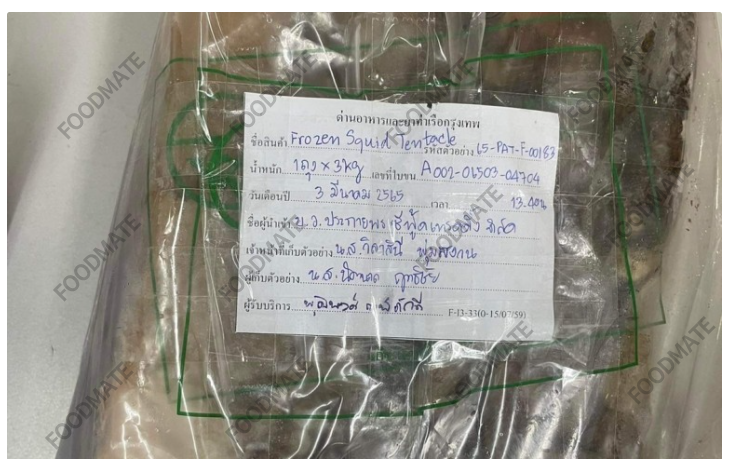 ด่านอาหารและยาท่าเรือกรุงเทพ
ชื่อสินค้า Frozen Squid Tentacle รหัสตัวอย่าง 65-PAT-F-00183
น้ำหนัก 1ถุง x 3kg เลขที่ใบขน A002-06503-04704
วันเดือนปี 3 มีนาคม 2565 เวลา 13.40น
ชื่อผู้นำเข้า บ.จ. ประกายพร ซีฟู้ด เทรดดิ้ง จำกัด
เจ้าหน้าที่เก็บตัวอย่าง น.ส.
ผู้เก็บตัวอย่าง น.ส.
ผู้รับบริการ F-I3-33(0-15/07/59)
FOODMATE
FOODMATE
FOODMATE
FOODMATE
FOODMATE
FOODMATE
FOODMATE
FOODMATE
FOODMATE